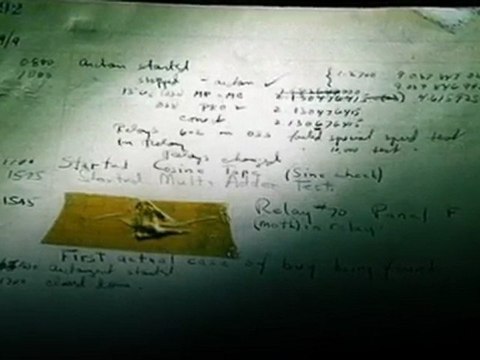 92
9/9
0800 Antan started
1000 " stopped - antan ✓ { 1.2700 9.037 847 025
13'uc (032) MP-MC 2.130476415 (-3) 4.615925
033 PRO 2 2.130476415
correct 2.130676415
Relays 6-2 in 033 failed special speed test
in relay " 10.000 test.
Relays changed
1100 Started Cosine Tape (Sine check)
1525 Started Multi Adder Test.
1545 Relay #70 Panel F
(moth) in relay.
First actual case of bug being found.
antangent started.
1700 closed down.